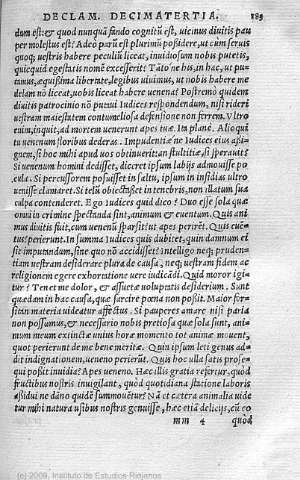 DECLAM. DECIMATERTIA. 189
dum est: & quod nunquã fando cognitũ est, uicinus diuitis pau
per molestus est? Adeò parũ est plurimũ possidere, ut cum seruis
quoq; uestris habere peculiũ liceat, inuidiosum nobis putetis,
quicquid egestatis nomẽ excesserit? Tatò ne his, in hac, ut pu-
tamus, æquissima libertate, legibus uiuimus, ut nobis habere me
dela nõ liceat, uobis liceat habere uenena? Postremò quidem
diuitis patrocinio nõ putaui Iudices respondendum, nisi rideri
uestram maiestatem contumeliosa defensione non ferrem. Vltro
enim, inquit, ad mortem uenerunt apes tuæ. In plane. Alioqui
tu uenenum floribus dederas. Impudentiæ ne Iudices eius assi-
gnem, si hoc mihi apud uos obtinueritan stultitiæ, si sperauit?
Si uenenum homini dedisset, diceret ipsum labijs admouisse po
cula. Si percussorem posuisset in saltu, ipsum in insidias ultro
uenisse clamaret. Si telũ obiectasset in tenebris, non illatum sua
culpa contenderet. Ego Iudices quid dico? Duo esse sola quæ
omni in crimine spectanda sint, animum & euentum. Quis ani-
mus diuitis fuit, cum uenenũ sparsit? ut apes perirẽt. Quis euẽ-
tus? perierunt. In summa Iudices quis dubitet, quin damnum ei
sit imputandum, sine quo nõ accidisset? Intelligo neq; pruden-
tiam uestram desiderare plura de causa, neq; uestram fidem ac
religionem egere exhortatione uere iudicãdi. Quid moror igi
tur? Tenet me dolor, & assuetæ uoluptatis desiderium. Sunt
quædam in hac causa, quæ sarcire pœna non possit. Maior for-
sitan materia uideatur affectus. Si pauperes amare nisi paria
non possumus, & necessario nobis pretiosa quæ sola sunt, ani-
mum meum extinctæ unius horæ momento tot animæ mouent,
quot perierunt de me bene merita. Quis ipsum leti genus ad-
dit indignationem, ueneno perierũt. Quis hoc ulla satis prose-
qui possit inuidia? Apes ueneno. Hac illis gratia refertur, quòd
fructibus nostris inuigilant, quòd quotidiana statione laboris
assidui ne dãno quidẽ summouẽtur? Nã et cætera animalia uide
tur mihi natura usibus nostris genuisse, hac etiã delicijs, cũ eo
mm 4 quòd
(c) 2009, Instituto de Estudios Riojanos